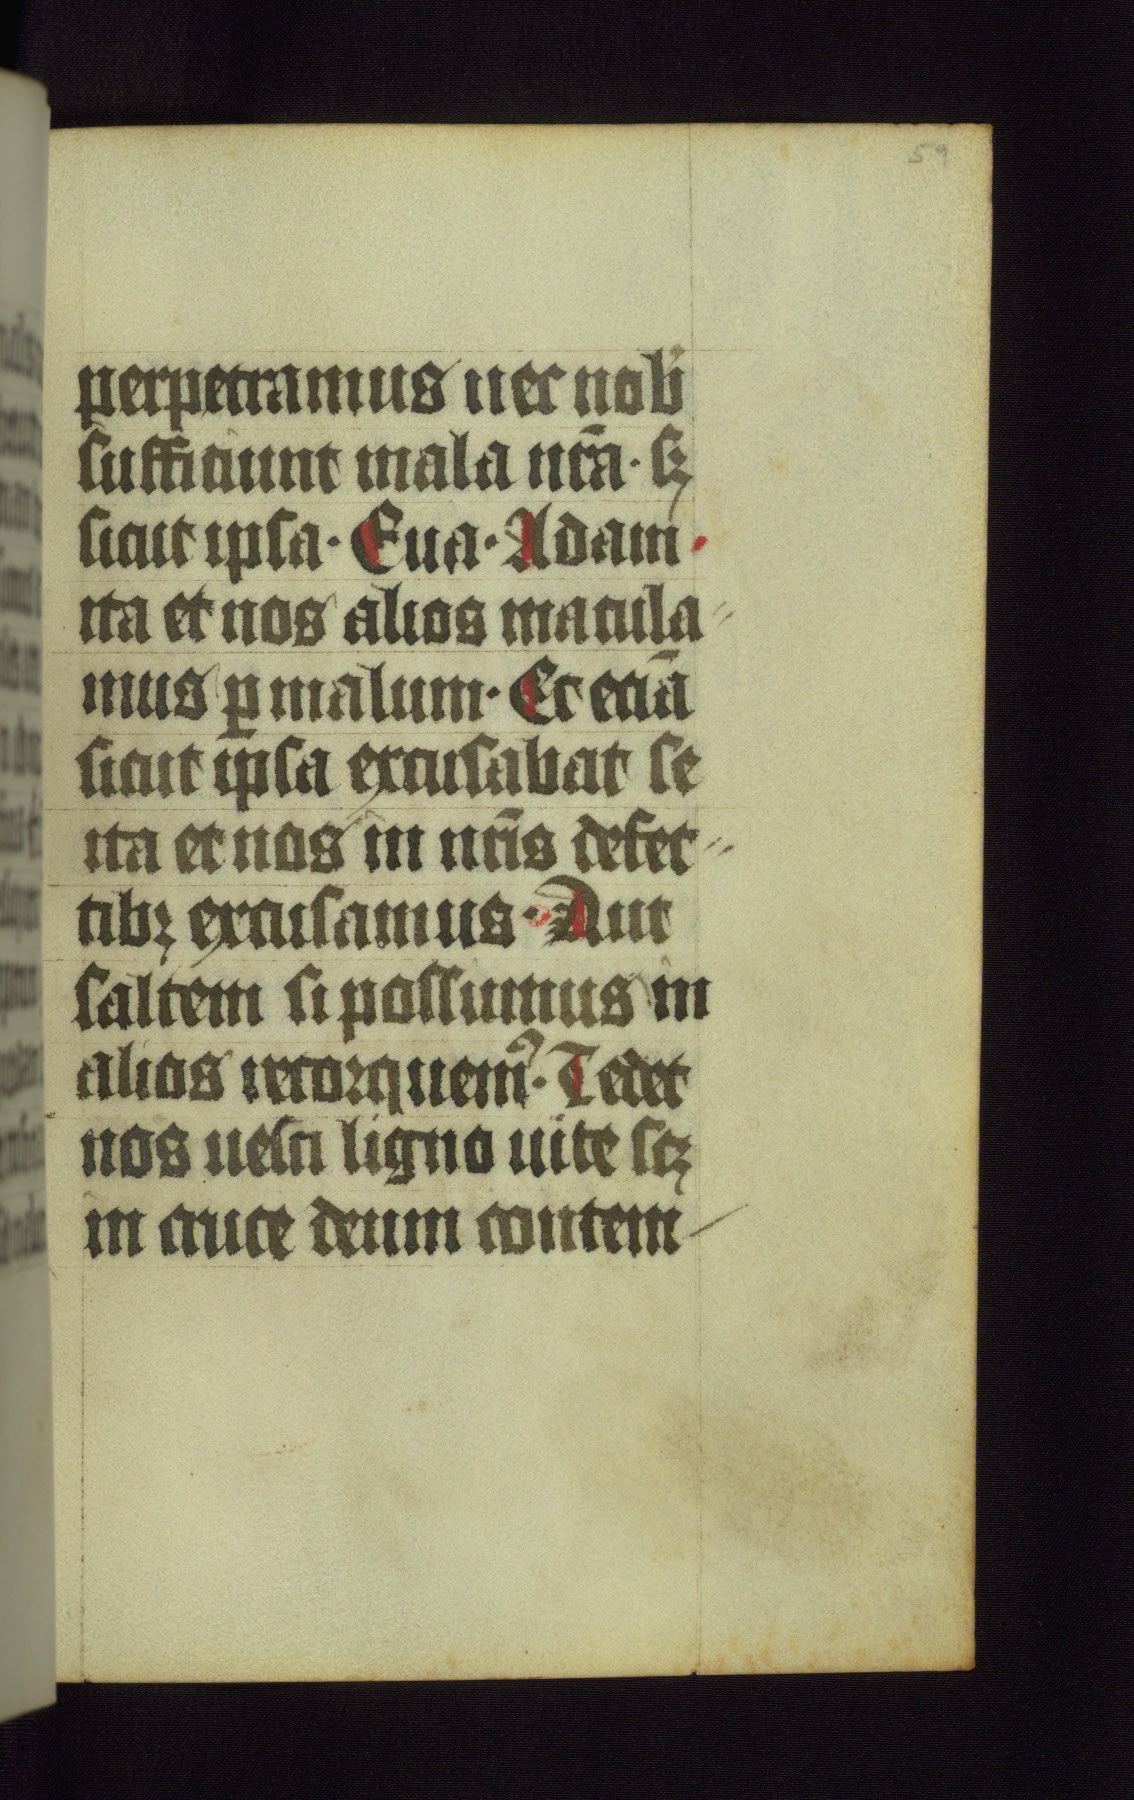 59
perpetramus nec nob̾
sufficiunt mala nr̄a· sꝫ
sicut ipsa· Eua· Adam·
ita et nos alios macula〃
mus ꝑ malum· Et etiā
sicut ipsa excusabat se
ita et nos in nr̄is defec〃
tibꝫ excusamus· Aut
saltem si possumus in
alios retorquem᷒· Tedet
nos uesci ligno uite scꝫ
in cruce deum contem/